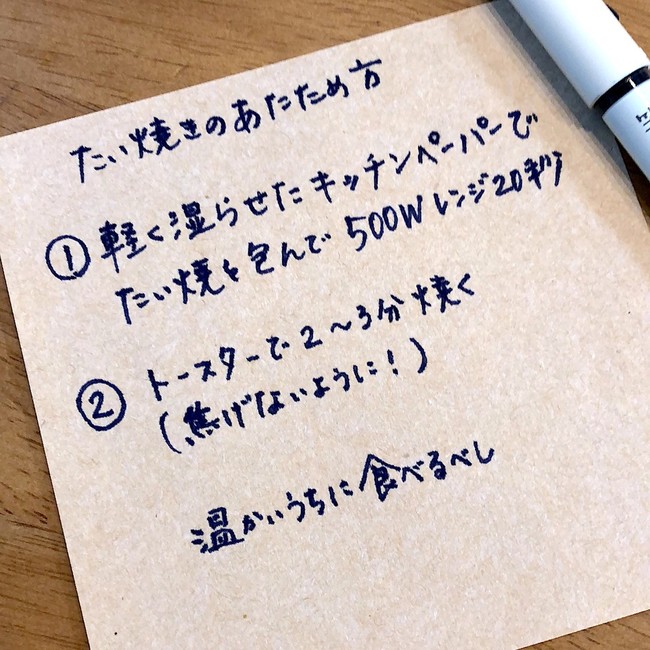 たい焼きのあたため方
① 軽く湿らせたキッチンペーパーで
たい焼を包んで 500W レンジ20秒
② トースターで2〜3分焼く
(焦げないように!)
温かいうちに食べるべし